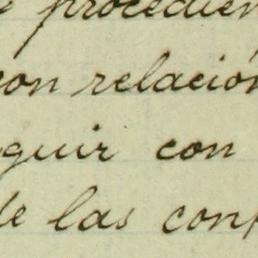 procedien
con relación
guir con
de las conf